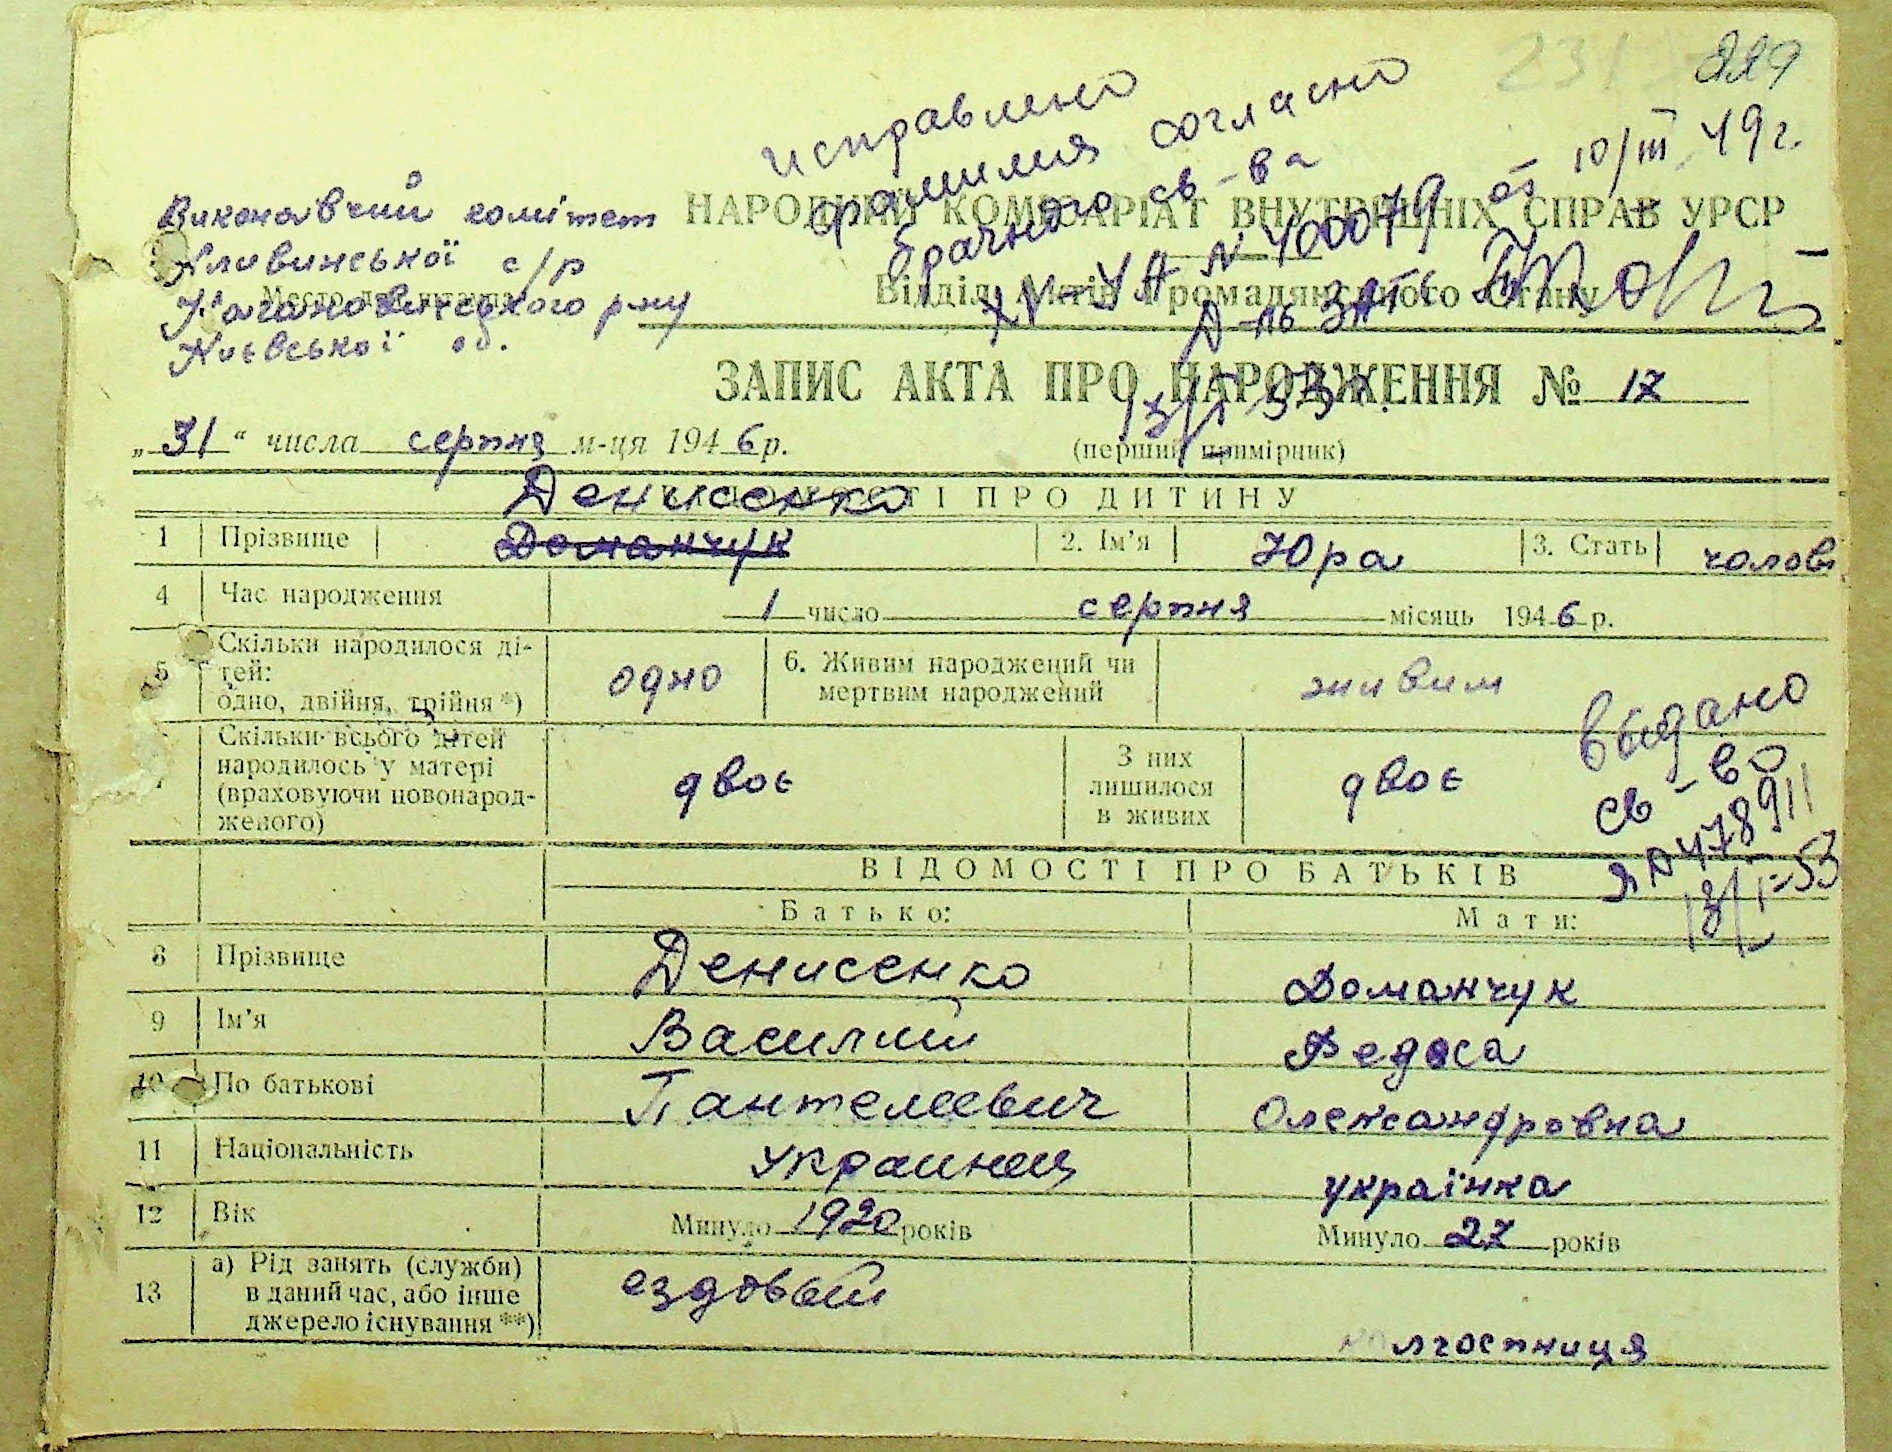 229
исправлено
фамилия согласно
брачного св-ва
10/III 49 г.
Виконавчий комітет
с/р
Кагановичського р-ну
Київської об.
НАРОДНИЙ КОМІСАРІАТ ВНУТРІШНІХ СПРАВ УРСР
Відділ Актів Громадянського Стану
№ 400079 от
ЗАПИС АКТА ПРО НАРОДЖЕННЯ № 17
13/I 53 г.
„ 31 “ числа серпня м-ця 1946 р.
(перший примірник)
ВІДОМОСТІ ПРО ДИТИНУ
Денисенко
1 Прізвище Доманчук 2. Ім'я Юра 3. Стать чолові
4 Час народження 1 число серпня місяць 1946 р.
5 Скільки народилося ді-
тей:
одно, двійня, трійня *) одно 6. Живим народжений чи
мертвим народжений живим
Скільки всього дітей
народилось у матері
(враховуючи новонарод-
женого) двоє З них
лишилося
в живих двоє
выдано
св-во
ЯА 478911
13/I-53
ВІДОМОСТІ ПРО БАТЬКІВ
Батько: Мати:
8 Прізвище Денисенко Доманчук
9 Ім'я Василий Федоса
10 По батькові Пантелеевич Олександровна
11 Національність украинец українка
12 Вік Минуло 1920 років Минуло 27 років
13 а) Рід занять (служби)
в даний час, або інше
джерело існування **) ездовый колгоспниця